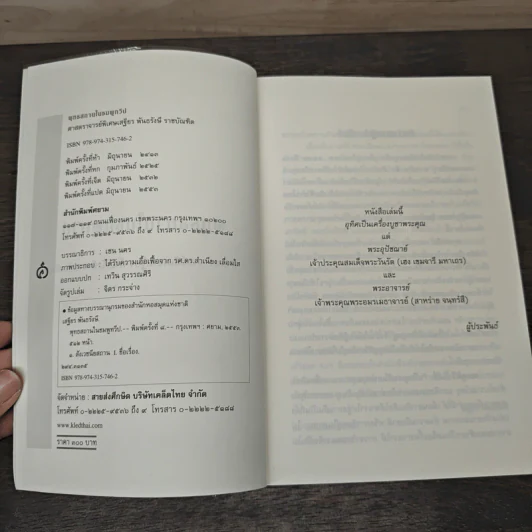 พุทธสถานในชมพูทวีป
ศาสตราจารย์พิเศษเสฐียร พันธรังษี ราชบัณฑิต
ISBN 978-974-315-746-2
พิมพ์ครั้งที่ห้า มิถุนายน ๒๕๑๓
พิมพ์ครั้งที่หก กุมภาพันธ์ ๒๕๒๕
พิมพ์ครั้งที่เจ็ด มิถุนายน ๒๕๓๒
พิมพ์ครั้งที่แปด มิถุนายน ๒๕๕๓
สำนักพิมพ์ศยาม
๑๑๗-๑๑๙ ถนนเฟื่องนคร เขตพระนคร กรุงเทพฯ ๑๐๒๐๐
โทรศัพท์ ๐-๒๒๒๕-๙๕๓๖ ถึง ๙ โทรสาร ๐-๒๒๒๒-๕๑๘๘
บรรณาธิการ : เชน นคร
ภาพประกอบ : ได้รับความเอื้อเฟื้อจาก รศ.ดร.สำเนียง เลื่อมใส
ออกแบบปก : เทวัน สุวรรณศิริ
จัดรูปเล่ม : จิตร กระจ่าง
● ข้อมูลทางบรรณานุกรมของสำนักหอสมุดแห่งชาติ
เสฐียร พันธรังษี.
พุทธสถานในชมพูทวีป.-- พิมพ์ครั้งที่ ๘.-- กรุงเทพฯ : ศยาม, ๒๕๕๓.
๕๑๒ หน้า
๑. สังเวชนียสถาน I. ชื่อเรื่อง.
๒๙๔.๓๑๓๕
ISBN 978-974-315-746-2
จัดจำหน่าย : สายส่งศึกษิต บริษัทเคล็ดไทย จำกัด
โทรศัพท์ ๐-๒๒๒๕-๙๕๓๖ ถึง ๙ โทรสาร ๐-๒๒๒๒-๕๑๘๘
www.kledthai.com
ราคา ๓๐๐ บาท
หนังสือเล่มนี้
อุทิศเป็นเครื่องบูชาพระคุณ
แด่
พระอุปัชฌาย์
เจ้าประคุณสมเด็จพระวันรัต (เฮง เขมจารี มหาเถร)
และ
พระอาจารย์
เจ้าพระคุณพระอมรเมธาจารย์ (สาหร่าย จนทร์สี)
ผู้ประพันธ์